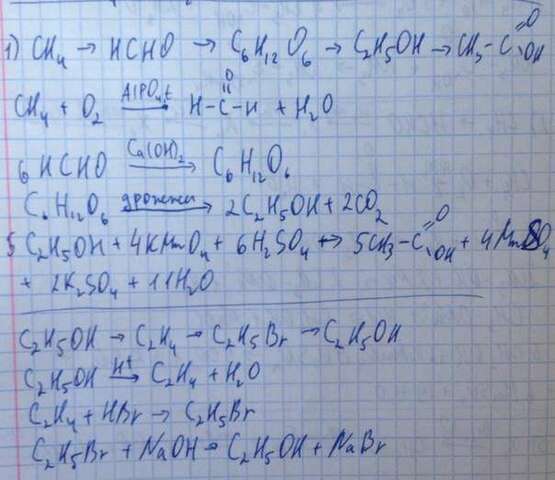 1) CH₄ → HCHO → C₆H₁₂O₆ → C₂H₅OH → CH₃-C(=O)OH
CH₄ + O₂ →(AlPO₄,t) H-C(=O)-H + H₂O
6HCHO →(Ca(OH)₂) C₆H₁₂O₆
C₆H₁₂O₆ →(дрожжи) 2C₂H₅OH + 2CO₂
5C₂H₅OH + 4KMnO₄ + 6H₂SO₄ ↔ 5CH₃-C(=O)OH + 4MnSO₄
+ 2K₂SO₄ + 11H₂O
C₂H₅OH → C₂H₄ → C₂H₅Br → C₂H₅OH
C₂H₅OH →(H⁺) C₂H₄ + H₂O
C₂H₄ + HBr → C₂H₅Br
C₂H₅Br + NaOH → C₂H₅OH + NaBr